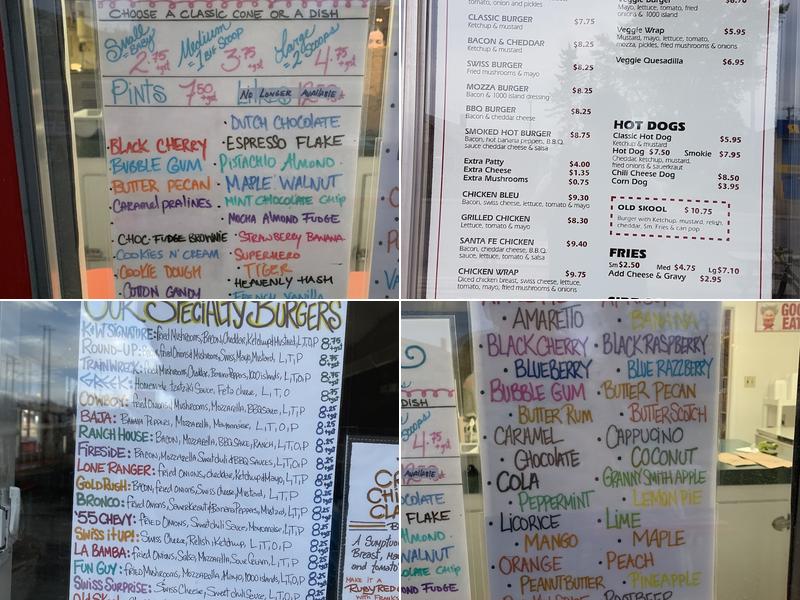 CHOOSE A CLASSIC CONE OR A DISH
Small
=BABY
2.75
+gst
Medium
=1 BIG SCOOP
3.75
+gst
Large
=2 SCOOPS
4.75
+gst
Pints 7.50
+gst
NO LONGER AVAILABLE
• DUTCH CHOCOLATE
• BLACK CHERRY • ESPRESSO FLAKE
BUBBLE GUM • PISTACHIO ALMOND
• BUTTER PECAN • MAPLE WALNUT
• CARAMEL PRALINES • MINT CHOCOLATE CHIP
MOCHA ALMOND FUDGE
• CHOC. FUDGE BROWNIE • STRAWBERRY BANANA
• COOKIES N' CREAM • SUPERHERO
• COOKIE DOUGH • TIGER
• COTTON CANDY • HEAVENLY HASH
FRENCH VANILLA
tomato, onion and pickles
CLASSIC BURGER $7.75
Ketchup & mustard
BACON & CHEDDAR $8.25
Ketchup & mustard
SWISS BURGER $8.25
Fried mushrooms & mayo
MOZZA BURGER $8.25
Bacon & 1000 island dressing
BBQ BURGER $8.25
Bacon & cheddar cheese
SMOKED HOT BURGER $8.75
Bacon, hot banana peppers, B.B.Q.
sauce cheddar cheese & salsa
Extra Patty $4.00
Extra Cheese $1.35
Extra Mushrooms $0.75
CHICKEN BLEU $9.30
Bacon, swiss cheese, lettuce, tomato & mayo
GRILLED CHICKEN $8.30
Lettuce, tomato & mayo
SANTA FE CHICKEN $9.40
Bacon, cheddar cheese, B.B.Q.
sauce, lettuce, tomato & salsa
CHICKEN WRAP $9.75
Diced chicken breast, swiss cheese, lettuce,
tomato, mayo, fried mushrooms & onions
Veggie Burger
Mayo, lettuce, tomato, fried
onions & 1000 island
Veggie Wrap $5.95
Mustard, mayo, lettuce, tomato,
mozza, pickles, fried mushrooms & onions
Veggie Quesadilla $6.95
HOT DOGS
Classic Hot Dog $5.95
Ketchup & mustard
Hot Dog $7.50 Smokie $7.95
Cheddar, ketchup, mustard,
fried onions & sauerkraut
Chili Cheese Dog $8.50
Corn Dog $3.95
OLD SKOOL $10.75
Burger with Ketchup, mustard, relish,
cheddar, Sm. Fries & can pop
FRIES
Sm $2.50 Med $4.75 Lg $7.10
Add Cheese & Gravy $2.95
OUR SPECIALTY BURGERS
K&W SIGNATURE: Fried Mushrooms, Bacon, Cheddar, Ketchup, Mustard L,T,P 8.75
ROUND-UP: Bacon, Fried Onions & Mushrooms, Swiss, Mayo, Mustard, L,T,P 8.75
TRAINWRECK: Fried Mushrooms, Cheddar, Banana Peppers, 1000 islands, L,T,O,P 8.75
GREEK: Homemade tzatziki Sauce, Feta cheese, L,T,O 8.75
COWBOY: Fried Onions, Mushrooms, Mozzarella, BBQ Sauce, L,T,P 8.25
BAJA: Banana Peppers, Mozzarella, Mayonnaise, L,T,O,P 8.25
RANCH HOUSE: Bacon, Mozzarella, BBQ Sauce, Ranch, L,T,O,P 8.25
FIRESIDE: Bacon, Mozzarella, Sweet chili & BBQ Sauces, L,T,O,P 8.25
LONE RANGER: Fried onions, cheddar, Ketchup, Mayo, L,T,P 8.25
GOLD RUSH: Bacon, fried Onions, Swiss Cheese, Mustard, L,T,P 8.25
BRONCO: Fried Onions, Sauerkraut, Banana Peppers, Mustard, L,T,P 8.25
'55 CHEVY: Fried Onions, Sweet chili Sauce, Mayonnaise, L,T,P 8.25
SWISS IT UP!: Swiss Cheese, Relish, Ketchup, L,T,O,P 8.25
LA BAMBA: Fried Onions, Salsa, Mozzarella, Sour Cream, L,T,P 8.25
FUN GUY: Fried Mushrooms, Mozzarella, Mayo, 1000 islands, L,T,O,P 8.25
SWISS SURPRISE: Swiss Cheese, Sweet chili Sauce, L,T,O,P 8.25
A Sumptuous
Breast,
and tomato
MAKE IT A
RUBY RED
WITH FRANK'S
DISH
SCOOPS
4.75
+gst
AVAILABLE
FLAKE
ALMOND
WALNUT
COLATE CHIP
OND FUDGE
• AMARETTO • BANANA
• BLACK CHERRY • BLACK RASPBERRY
• BLUEBERRY • BLUE RAZZBERRY
• BUBBLE GUM • BUTTER PECAN
• BUTTER RUM • BUTTERSCOTCH
• CARAMEL • CAPPUCINO
• CHOCOLATE • COCONUT
• COLA • GRANNY SMITH APPLE
• PEPPERMINT • LEMON PIE
• LICORICE • LIME
• MANGO • MAPLE
• ORANGE • PEACH
• PEANUT BUTTER • PINEAPPLE
ROOTBEER
GOOD
EATS